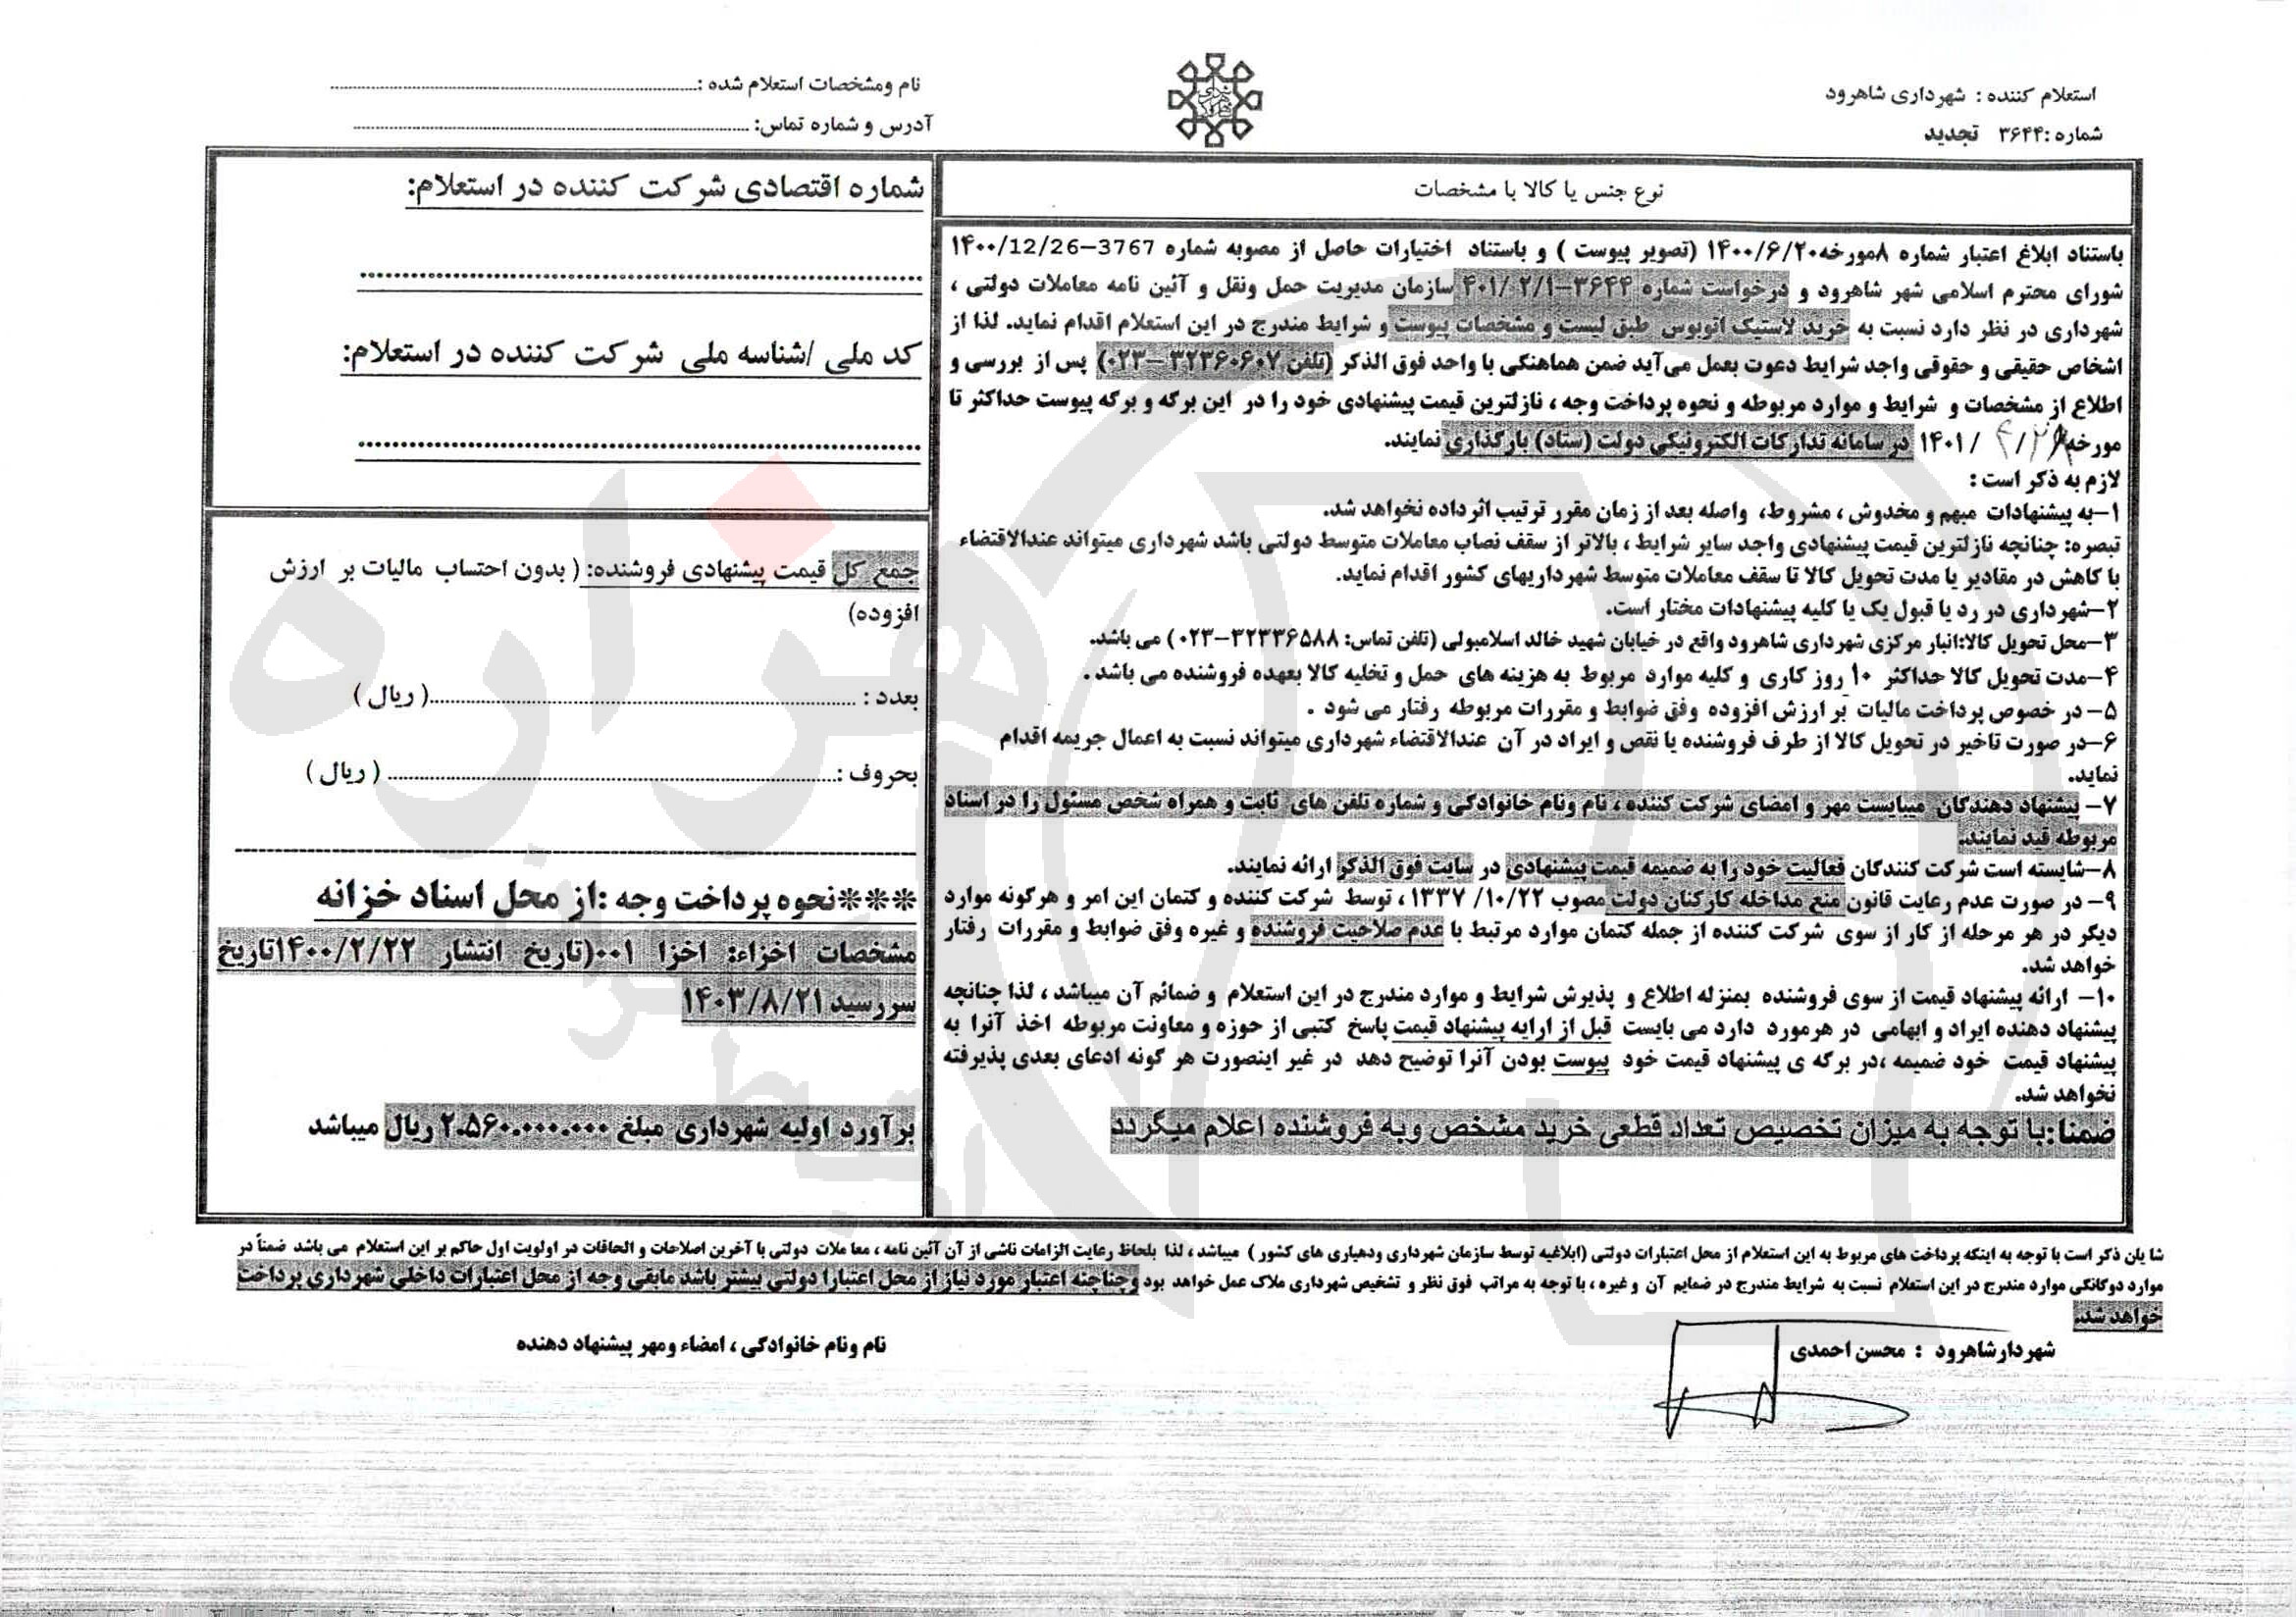 استعلام کننده : شهرداری شاهرود
شماره :۳۶۴۴ تجدید
نام ومشخصات استعلام شده :
آدرس و شماره تماس:
نوع جنس یا کالا با مشخصات
باستناد ابلاغ اعتبار شماره ۸مورخه۱۴۰۰/۶/۲۰ (تصویر پیوست ) و باستناد اختیارات حاصل از مصوبه شماره 3767-۱۴۰۰/12/26
شورای محترم اسلامی شهر شاهرود و درخواست شماره ۳۶۴۴-۴۰۱/۲/۱ سازمان مدیریت حمل ونقل و آئین نامه معاملات دولتی ،
شهرداری در نظر دارد نسبت به خرید لاستیک اتوبوس طبق لیست و مشخصات پیوست و شرایط مندرج در این استعلام اقدام نماید. لذا از
اشخاص حقیقی و حقوقی واجد شرایط دعوت بعمل می‌آید ضمن هماهنگی با واحد فوق الذکر (تلفن ۳۲۳۶۰۶۰۷-۰۲۳) پس از بررسی و
اطلاع از مشخصات و شرایط و موارد مربوطه و نحوه پرداخت وجه ، نازلترین قیمت پیشنهادی خود را در این برگه و برگه پیوست حداکثر تا
مورخه ۱۴۰۱/ در سامانه تدارکات الکترونیکی دولت (ستاد) بارگذاری نمایند.
لازم به ذکر است :
۱-به پیشنهادات مبهم و مخدوش ، مشروط، واصله بعد از زمان مقرر ترتیب اثرداده نخواهد شد.
تبصره: چنانچه نازلترین قیمت پیشنهادی واجد سایر شرایط ، بالاتر از سقف نصاب معاملات متوسط دولتی باشد شهرداری میتواند عندالاقتضاء
با کاهش در مقادیر یا مدت تحویل کالا تا سقف معاملات متوسط شهرداریهای کشور اقدام نماید.
۲-شهرداری در رد یا قبول یک یا کلیه پیشنهادات مختار است.
۳-محل تحویل کالا:انبار مرکزی شهرداری شاهرود واقع در خیابان شهید خالد اسلامبولی (تلفن تماس: ۳۲۳۳۶۵۸۸-۰۲۳) می باشد.
۴-مدت تحویل کالا حداکثر ۱۰ روز کاری و کلیه موارد مربوط به هزینه های حمل و تخلیه کالا بعهده فروشنده می باشد .
۵- در خصوص پرداخت مالیات بر ارزش افزوده وفق ضوابط و مقررات مربوطه رفتار می شود .
۶-در صورت تاخیر در تحویل کالا از طرف فروشنده یا نقص و ایراد در آن عندالاقتضاء شهرداری میتواند نسبت به اعمال جریمه اقدام
نماید.
۷- پیشنهاد دهندگان میبایست مهر و امضای شرکت کننده ، نام ونام خانوادگی و شماره تلفن های ثابت و همراه شخص مسئول را در اسناد
مربوطه قید نمایند.
۸-شایسته است شرکت کنندگان فعالیت خود را به ضمیمه قیمت پیشنهادی در سایت فوق الذکر ارائه نمایند.
۹- در صورت عدم رعایت قانون منع مداخله کارکنان دولت مصوب ۱۳۳۷/۱۰/۲۲ ، توسط شرکت کننده و کتمان این امر و هرگونه موارد
دیگر در هر مرحله از کار از سوی شرکت کننده از جمله کتمان موارد مرتبط با عدم صلاحیت فروشنده و غیره وفق ضوابط و مقررات رفتار
خواهد شد.
۱۰- ارائه پیشنهاد قیمت از سوی فروشنده بمنزله اطلاع و پذیرش شرایط و موارد مندرج در این استعلام و ضمائم آن میباشد ، لذا چنانچه
پیشنهاد دهنده ایراد و ابهامی در هرمورد دارد می بایست قبل از ارایه پیشنهاد قیمت پاسخ کتبی از حوزه و معاونت مربوطه اخذ آنرا به
پیشنهاد قیمت خود ضمیمه ،در برگه ی پیشنهاد قیمت خود پیوست بودن آنرا توضیح دهد در غیر اینصورت هر گونه ادعای بعدی پذیرفته
نخواهد شد.
ضمنا:با توجه به میزان تخصیص تعداد قطعی خرید مشخص وبه فروشنده اعلام میگردد
شماره اقتصادی شرکت کننده در استعلام:
کد ملی /شناسه ملی شرکت کننده در استعلام:
جمع کل قیمت پیشنهادی فروشنده: ( بدون احتساب مالیات بر ارزش
افزوده)
بعدد : ( ریال )
بحروف : ( ریال )
***نحوه پرداخت وجه :از محل اسناد خزانه
مشخصات اخزاء: اخزا ۰۰۱(تاریخ انتشار ۱۴۰۰/۲/۲۲تاریخ
سررسید ۱۴۰۳/۸/۲۱
برآورد اولیه شهرداری مبلغ ۲.۵۶۰.۰۰۰.۰۰۰ ریال میباشد
شا یان ذکر است با توجه به اینکه پرداخت های مربوط به این استعلام از محل اعتبارات دولتی (ابلاغیه توسط سازمان شهرداری ودهیاری های کشور ) میباشد ، لذا بلحاظ رعایت الزامات ناشی از آن آئین نامه ، معا ملات دولتی با آخرین اصلاحات و الحاقات در اولویت اول حاکم بر این استعلام می باشد ضمناً در
موارد دوگانگی موارد مندرج در این استعلام نسبت به شرایط مندرج در ضمایم آن و غیره ، با توجه به مراتب فوق نظر و تشخیص شهرداری ملاک عمل خواهد بود وچناچته اعتبار مورد نیاز از محل اعتبارا دولتی بیشتر باشد مابقی وجه از محل اعتبارات داخلی شهرداری پرداخت
خواهد شد.
شهردارشاهرود : محسن احمدی
نام ونام خانوادگی ، امضاء ومهر پیشنهاد دهنده
هزاره